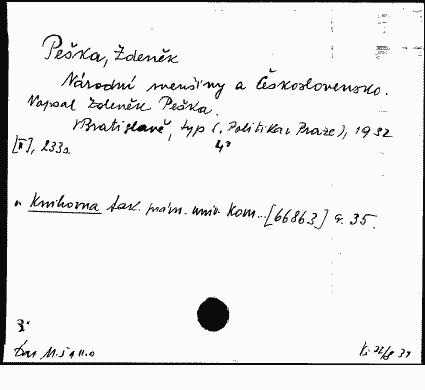 Peška, Zdeněk
Národní menšiny a Československo.
Napsal Zdeněk Peška.
V Bratislavě, typ (. Politika v Praze), 1932
[II], 233s. 4°
Knihovna fak. práv. univ. Kom. [66863] č. 35.